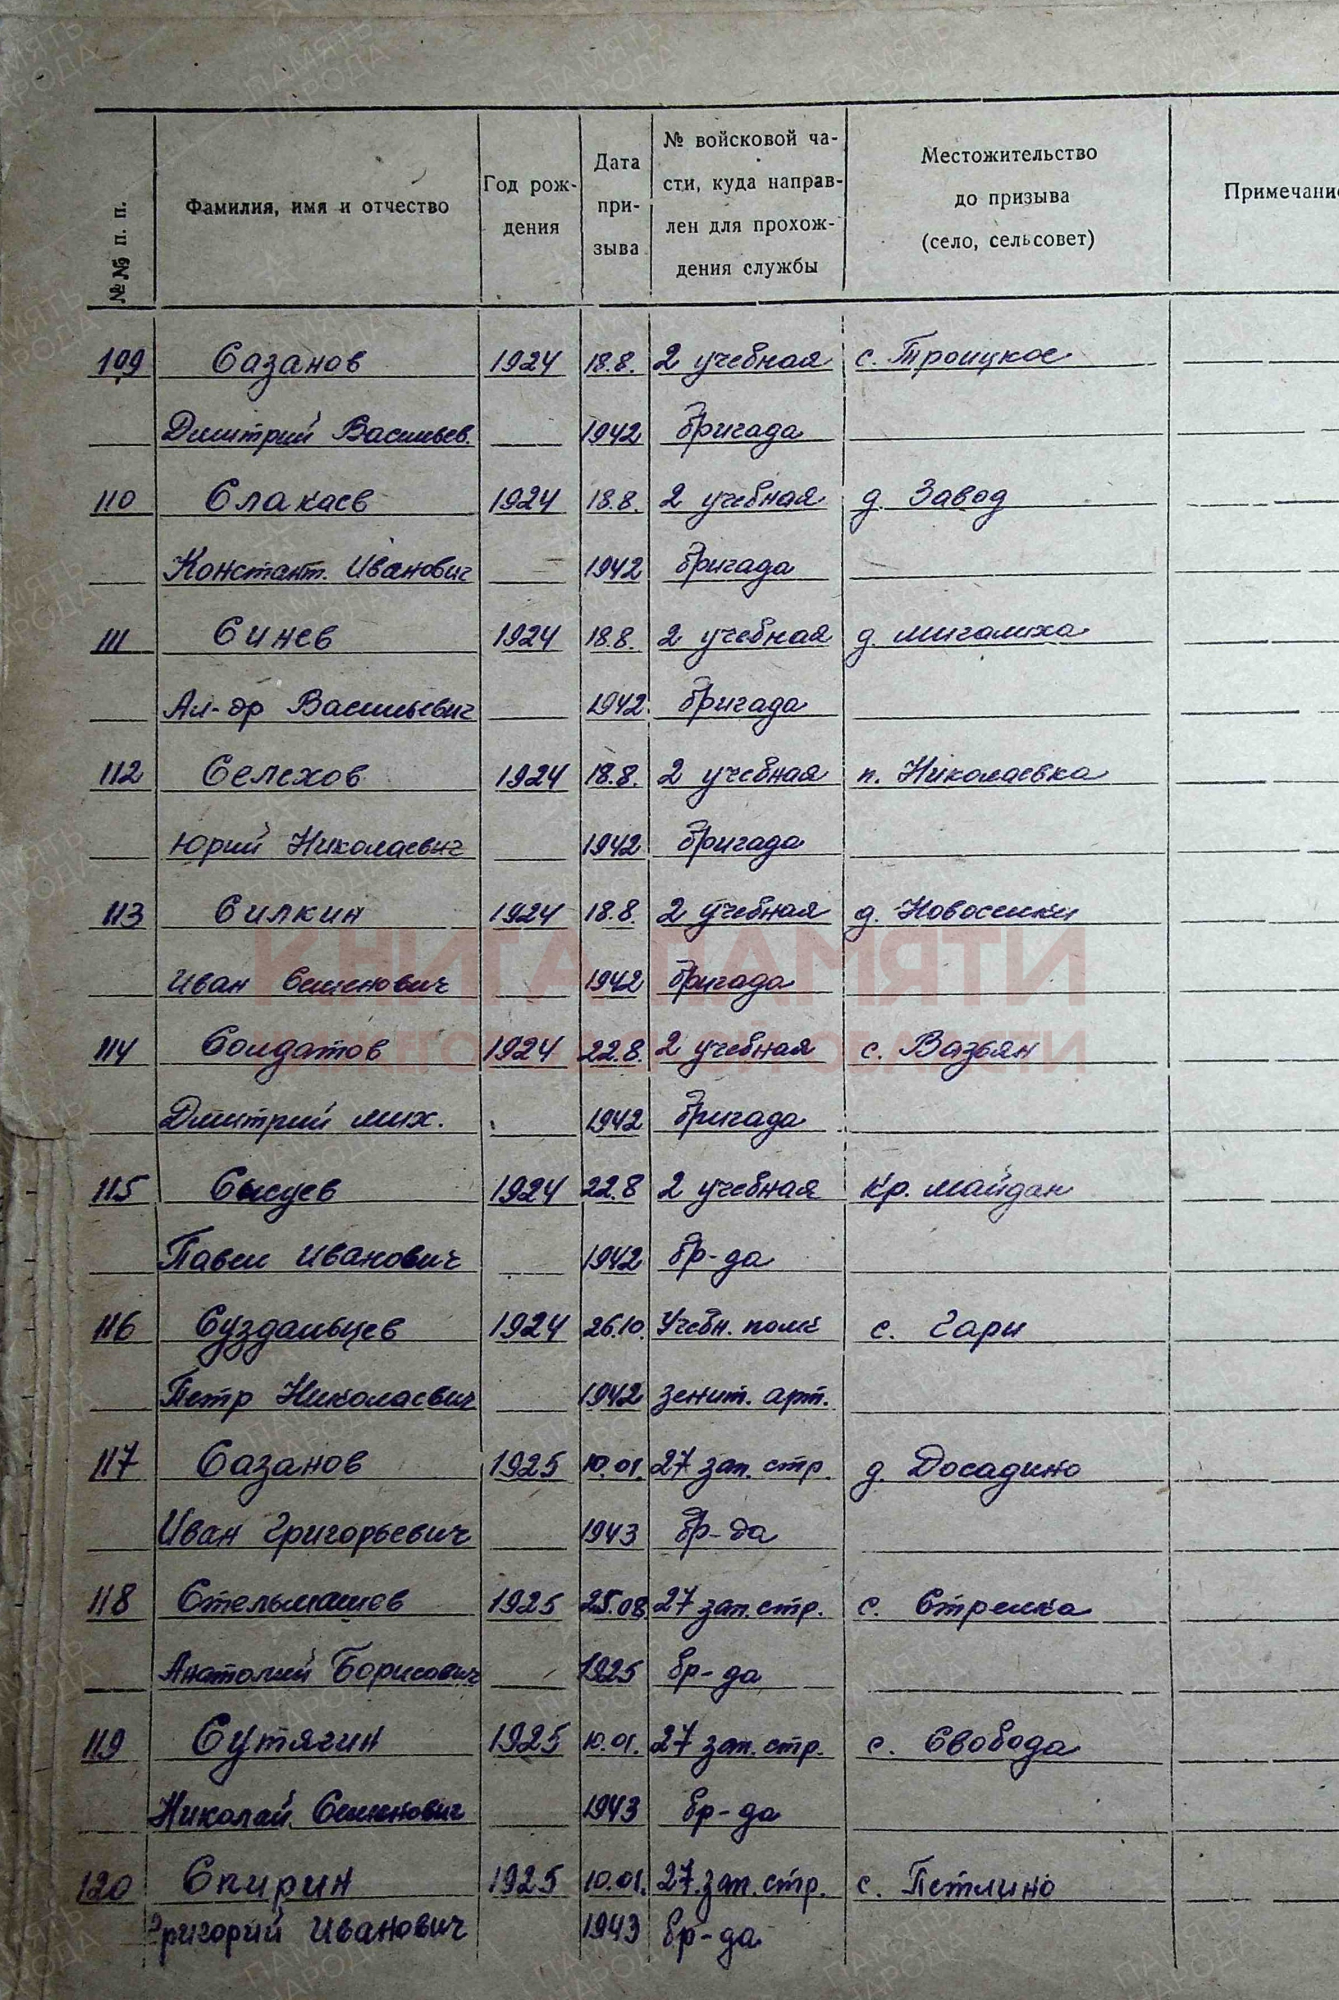 №№ п. п. Фамилия, имя и отчество Год рождения Дата призыва № войсковой части, куда направлен для прохождения службы Местожительство до призыва (село, сельсовет) Примечани
109 Сазанов 1924 18.8. 2 учебная с. Троицкое
Дмитрий Васильев. 1942 бригада
110 Слакаев 1924 18.8. 2 учебная д. Завод
Констант. Иванович 1942 бригада
111 Синев 1924 18.8. 2 учебная д. Мигалиха
Ал-др Васильевич 1942 бригада
112 Селехов 1924 18.8. 2 учебная п. Николаевка
Юрий Николаевич 1942 бригада
113 Силкин 1924 18.8. 2 учебная д. Новоселки
Иван Семенович 1942 бригада
114 Солдатов 1924 22.8. 2 учебная с. Вазьян
Дмитрий Мих. 1942 бригада
115 Сысуев 1924 22.8 2 учебная Кр. Майдан
Павел Иванович 1942 бр-да
116 Суздальцев 1924 26.10. Учебн. полк с. Гари
Петр Николаевич 1942 зенит. арт.
117 Сазанов 1925 10.01. 27 зап. стр. д. Досадино
Иван Григорьевич 1943 бр-да
118 Стельмашов 1925 25.08 27 зап. стр. с. Стрелка
Анатолий Борисович 1925 бр-да
119 Сутягин 1925 10.01. 27 зап. стр. с. Свобода
Николай Семенович 1943 бр-да
120 Спирин 1925 10.01. 27 зап. стр. с. Петлино
Григорий Иванович 1943 бр-да
КНИГА ПАМЯТИ
НИЖЕГОРОДСКОЙ ОБЛАСТИ
ПАМЯТЬ НАРОДА